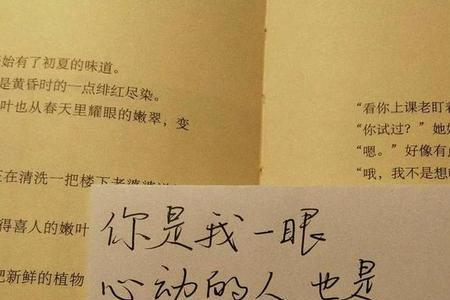 始有了初夏的味道。
是黄昏时的一点绯红尽染。
叶也从春天里耀眼的嫩翠，变
在清洗一把楼下老婆婆
得喜人的嫩叶
把新鲜的植物
“看你上课老盯着
“你试过？”她
“嗯。”好像有
“哦，我不是想
你是我一眼
心动的人 也是